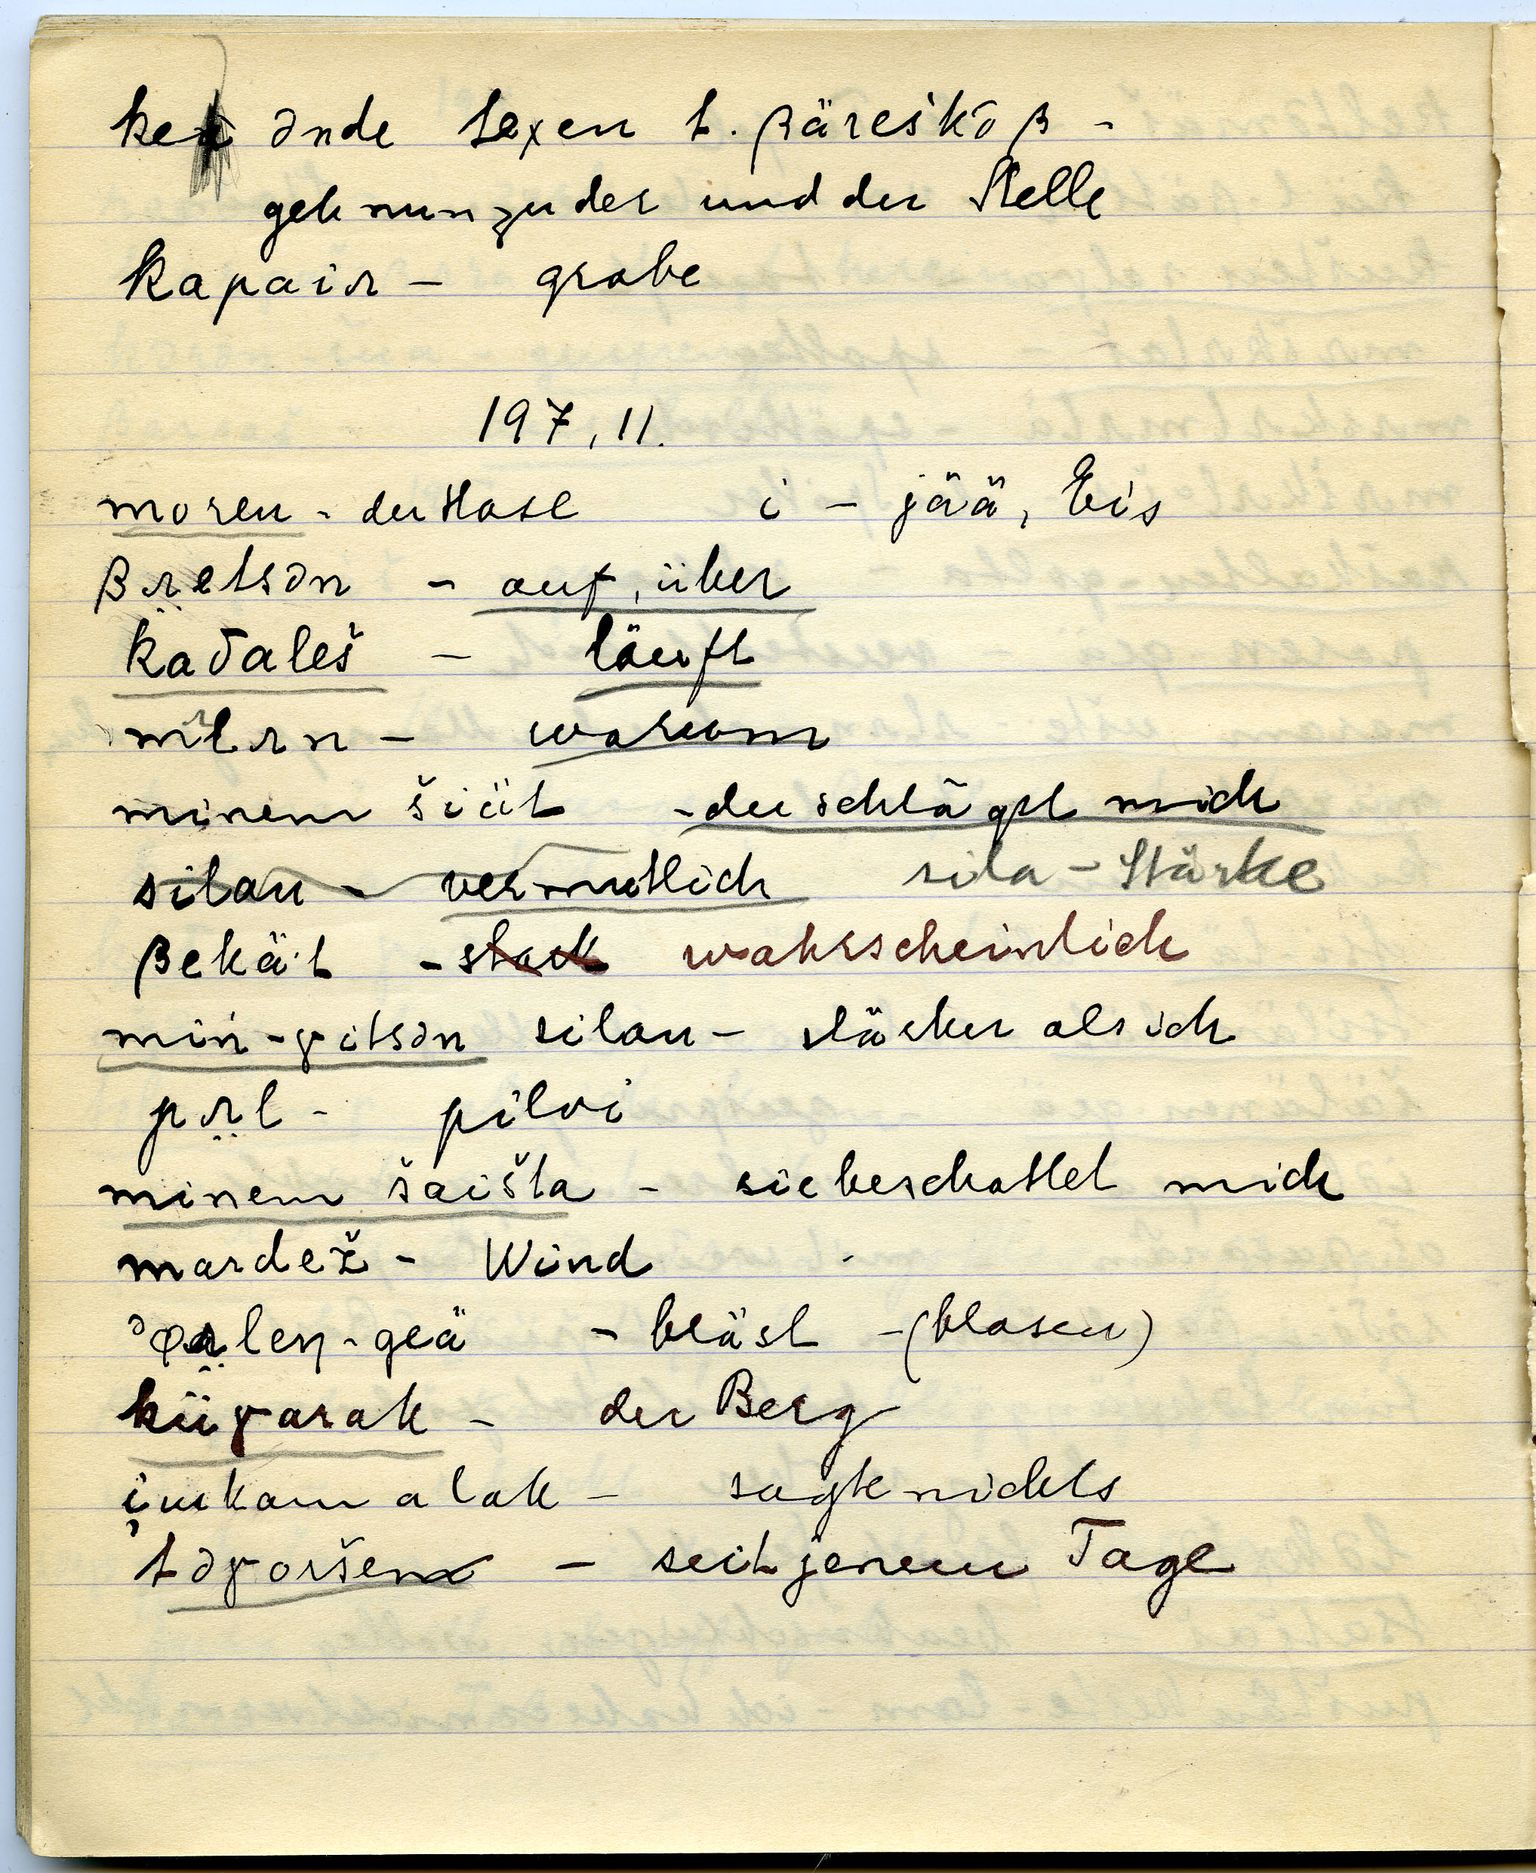 ke ənde texen t. βäreškǝβ -
geh nun zu der und der Stelle
kapaiə - grabe
197, 11.
moren - der Hase i - jää, Eis
βəletsən - auf, über
kaδaleš - läuft
warum
minem šiät - du schlägst mich
silan - vermutlich sila - Stärke
βekät - stark wahrscheinlich
min-γətsən silan - stärker als ich
pəl - pilvi
minem šaišta - sie beschattet mich
mardež - Wind
-geä - bläst - (blasen)
küγarak - der Berg
alak - sagte nichts
təγoršen - seit jenem Tage